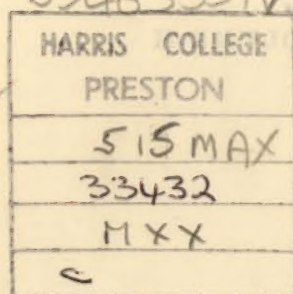 HARRIS COLLEGE
PRESTON
515 MAX
33432
MXX
C